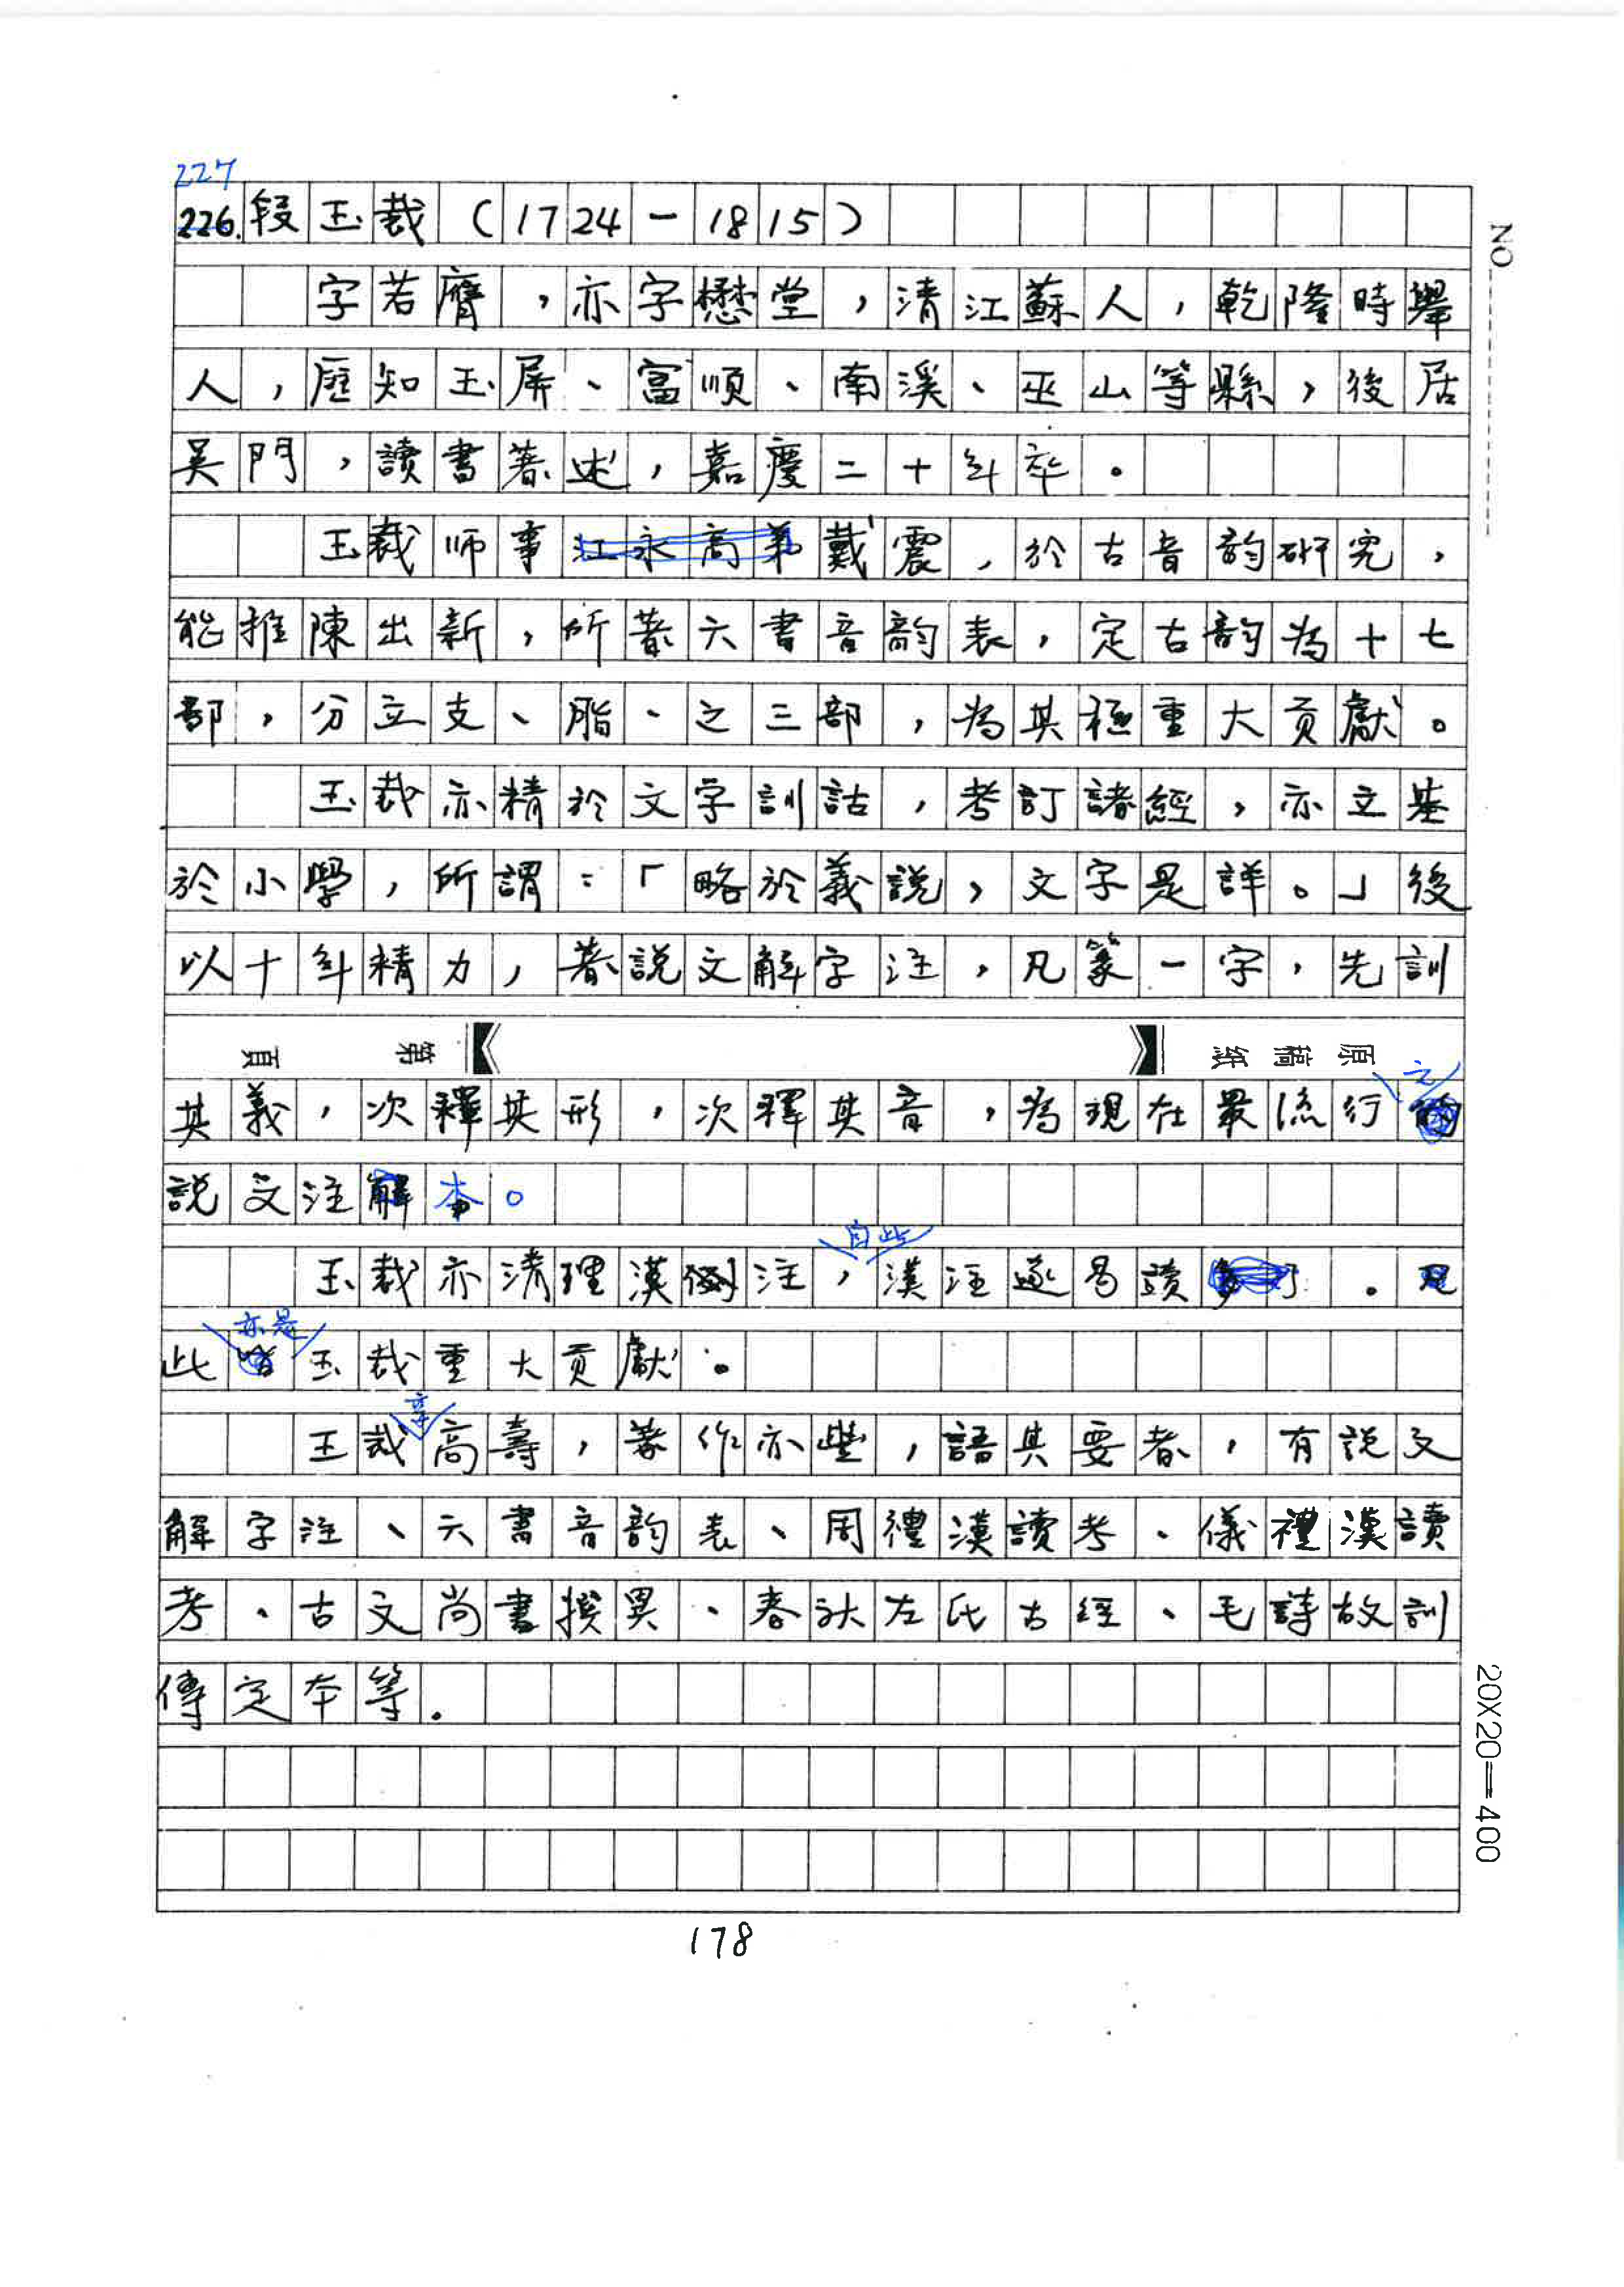 227
226.段玉裁(1724-1815)
字若膺,亦字懋堂,清江蘇人,乾隆時舉
人,歷知玉屏、富順、南溪、巫山等縣,後居
吳門,讀書著述,嘉慶二十年卒。
玉裁師事江永高弟戴震,於古音韵研究,
能推陳出新,所著六書音韵表,定古韵為十七
部,分立支、脂、之三部,為其極重大貢獻。
玉裁亦精於文字訓詁,考訂諸經,亦立基
於小學,所謂:「略於義說,文字是詳。」後
以十年精力,著說文解字注,凡篆一字,先訓
原稿紙 第 頁
其義,次釋其形,次釋其音,為現在最流行之
說文注解本。
玉裁亦清理漢例注,自此漢注遂易讀。
此亦是玉裁重大貢獻。
玉裁享高壽,著作亦豐,語其要者,有說文
解字注、六書音韵表、周禮漢讀考、儀禮漢讀
考、古文尚書撰異、春秋左氏古經、毛詩故訓
傳定本等。
178
NO
20X20=400